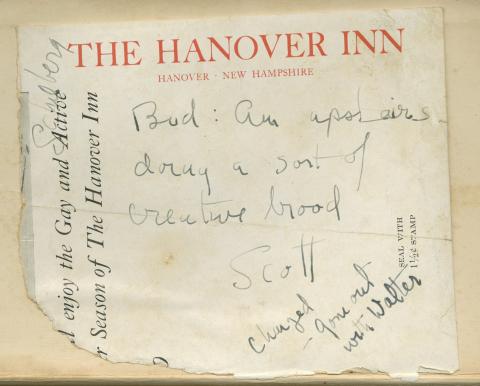 THE HANOVER INN
HANOVER · NEW HAMPSHIRE
Bud: Am upstairs
doing a sort of
creative brood
Scott
changed
- gone out
with Walter
SEAL WITH
1½¢ STAMP
l enjoy the Gay and Active
r Season of The Hanover Inn